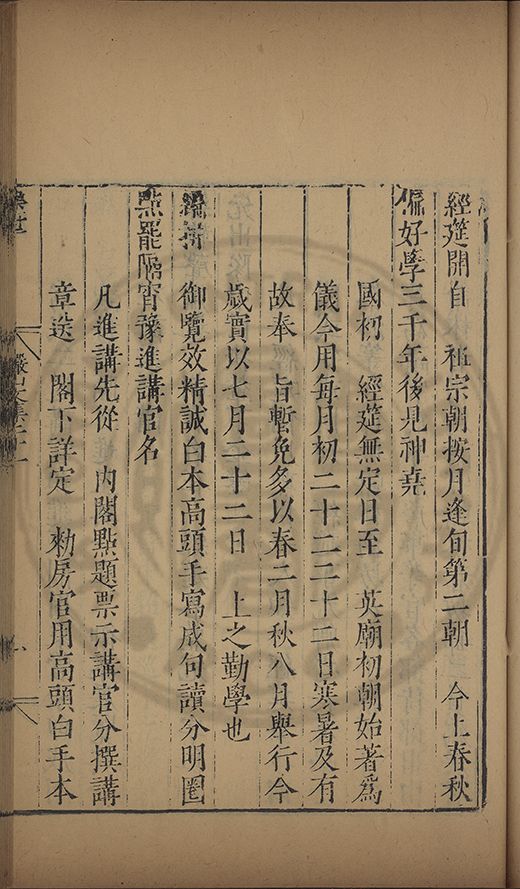 經筵開自　祖宗朝按月逢旬第二朝　今上春秋
偏好學三千年後見神堯
國初　經筵無定日至　英廟初朝始著爲
儀今用每月初二十二二十二日寒暑及有
故奉　旨暫免多以春二月秋八月舉行今
歲實以七月二十二日　上之勤學也
御覽效精誠白本高頭手寫成句讀分明圈
點罷隔宵豫進講官名
凡進講先從　內閣點題票示講官分撰講
章送　閣下詳定　勑房官用高頭白手本